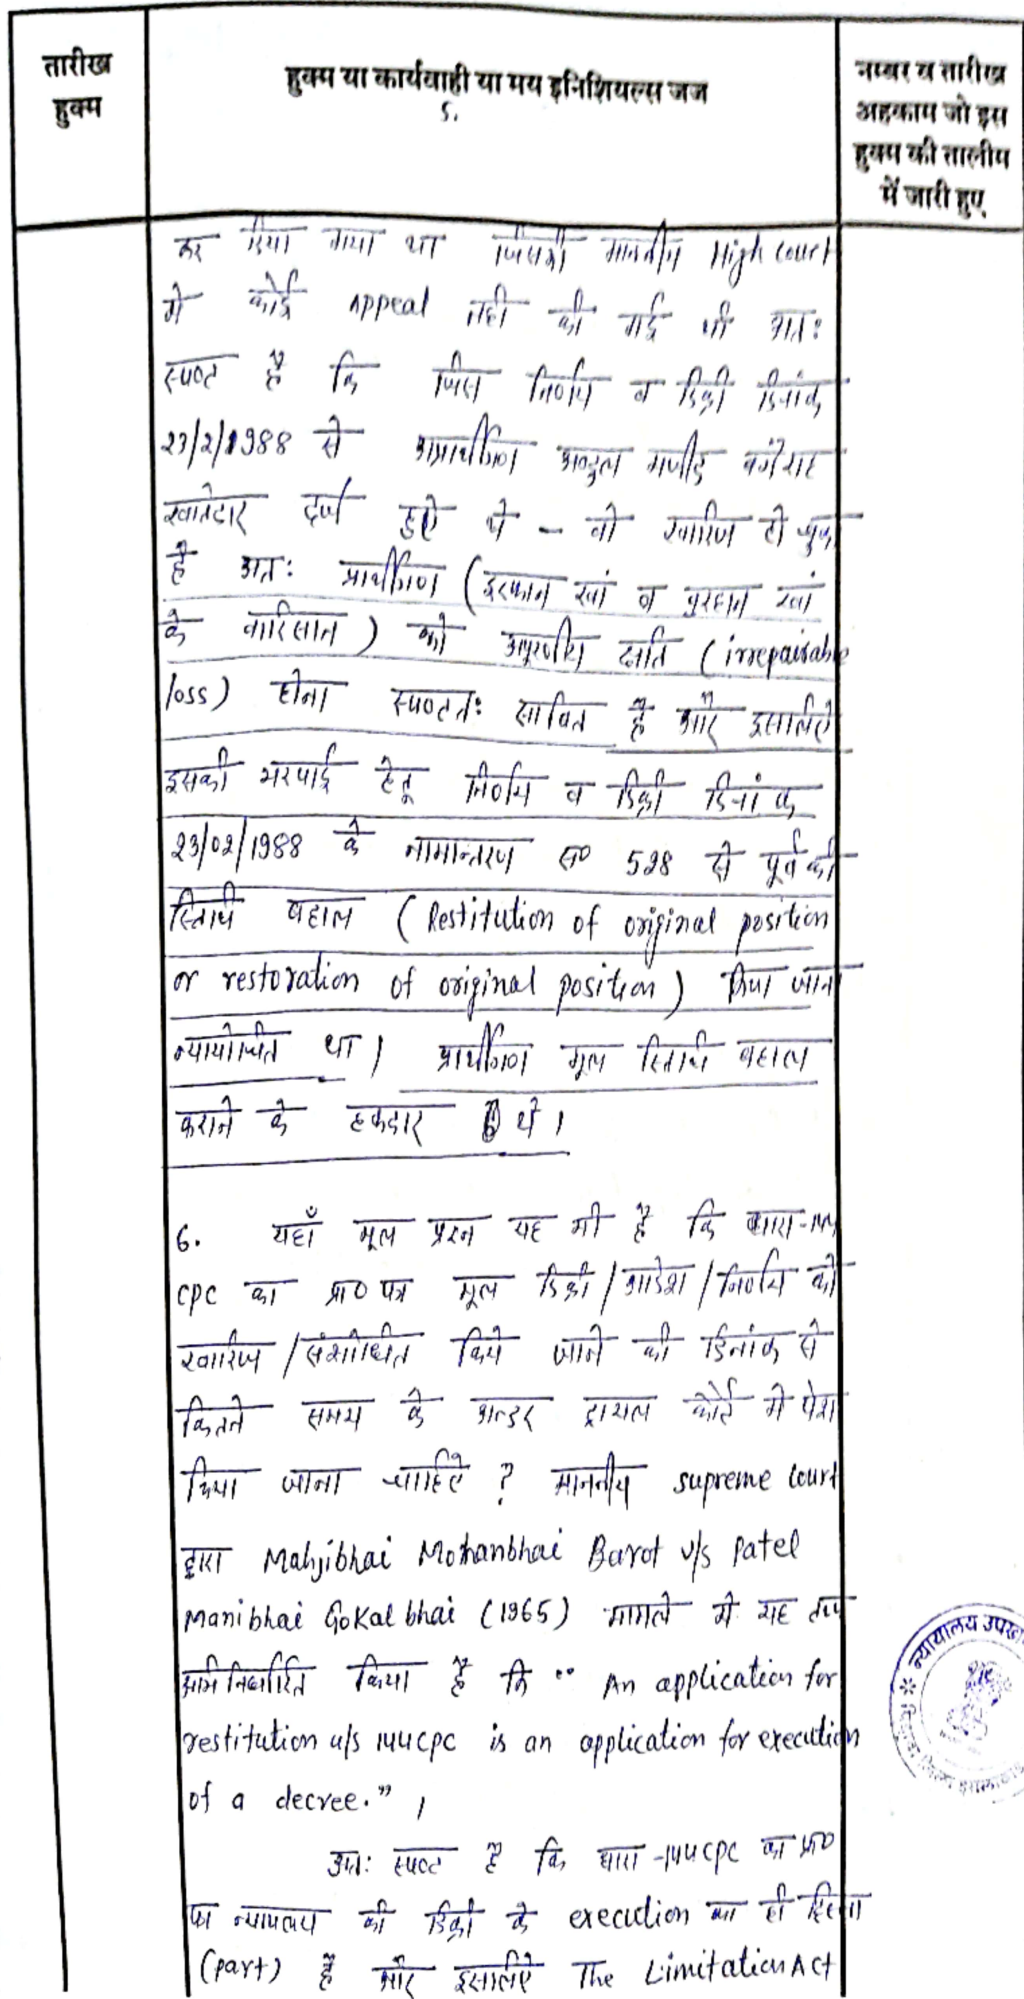 तारीख
हुक्म
हुक्म या कार्यवाही या मय इनिशियल्स जज
5.
नम्बर व तारीख
अहकाम जो इस
हुक्म की तालीम
में जारी हुए
कर दिया गया था जिसकी माननीय High Court
मे कोई Appeal नही की गई थी अतः
स्पष्ट है कि जिस निर्णय व डिक्री दिनांक
23/2/1988 से अप्रार्थीगण अब्दुल मजीद वगैराह
खातेदार दर्ज हुऐ थे - वो खारिज हो चुका
है अतः प्रार्थीगण (इरफान खां व बुरहान खां
के वारिसान) को अपूरणीय क्षति (irrepairable
loss) होना स्पष्टतः साबित है और इसलिऐ
इसकी भरपाई हेतू निर्णय व डिक्री दिनांक
23/02/1988 के नामान्तरण स० 528 से पूर्व की
स्तिथि बहाल (Restitution of original position
or restoration of original position) किया जाना
न्यायोचित था। प्रार्थीगण मूल स्तिथि बहाल
कराने के हकदार थे।
6. यहाँ मूल प्रश्न यह भी है कि धारा-144
CPC का प्रा० पत्र मूल डिक्री/आदेश/निर्णय को
खारिज/संशोधित किये जाने की दिनांक से
कितने समय के अन्डर ट्रायल कोर्ट मे पेश
किया जाना चाहिऐ ? माननीय supreme court
द्वारा Mahjibhai Mohanbhai Barot v/s Patel
Manibhai Gokalbhai (1965) मामले मे यह तथ्य
अभिनिर्धारित किया है कि " An application for
restitution u/s 144CPC is an application for execution
of a decree." ।
अतः स्पष्ट है कि धारा-144CPC का प्रा०
पत्र न्यायालय की डिक्री के execution का ही हिस्सा
(part) है और इसलिऐ The Limitation Act
न्यायालय उपख